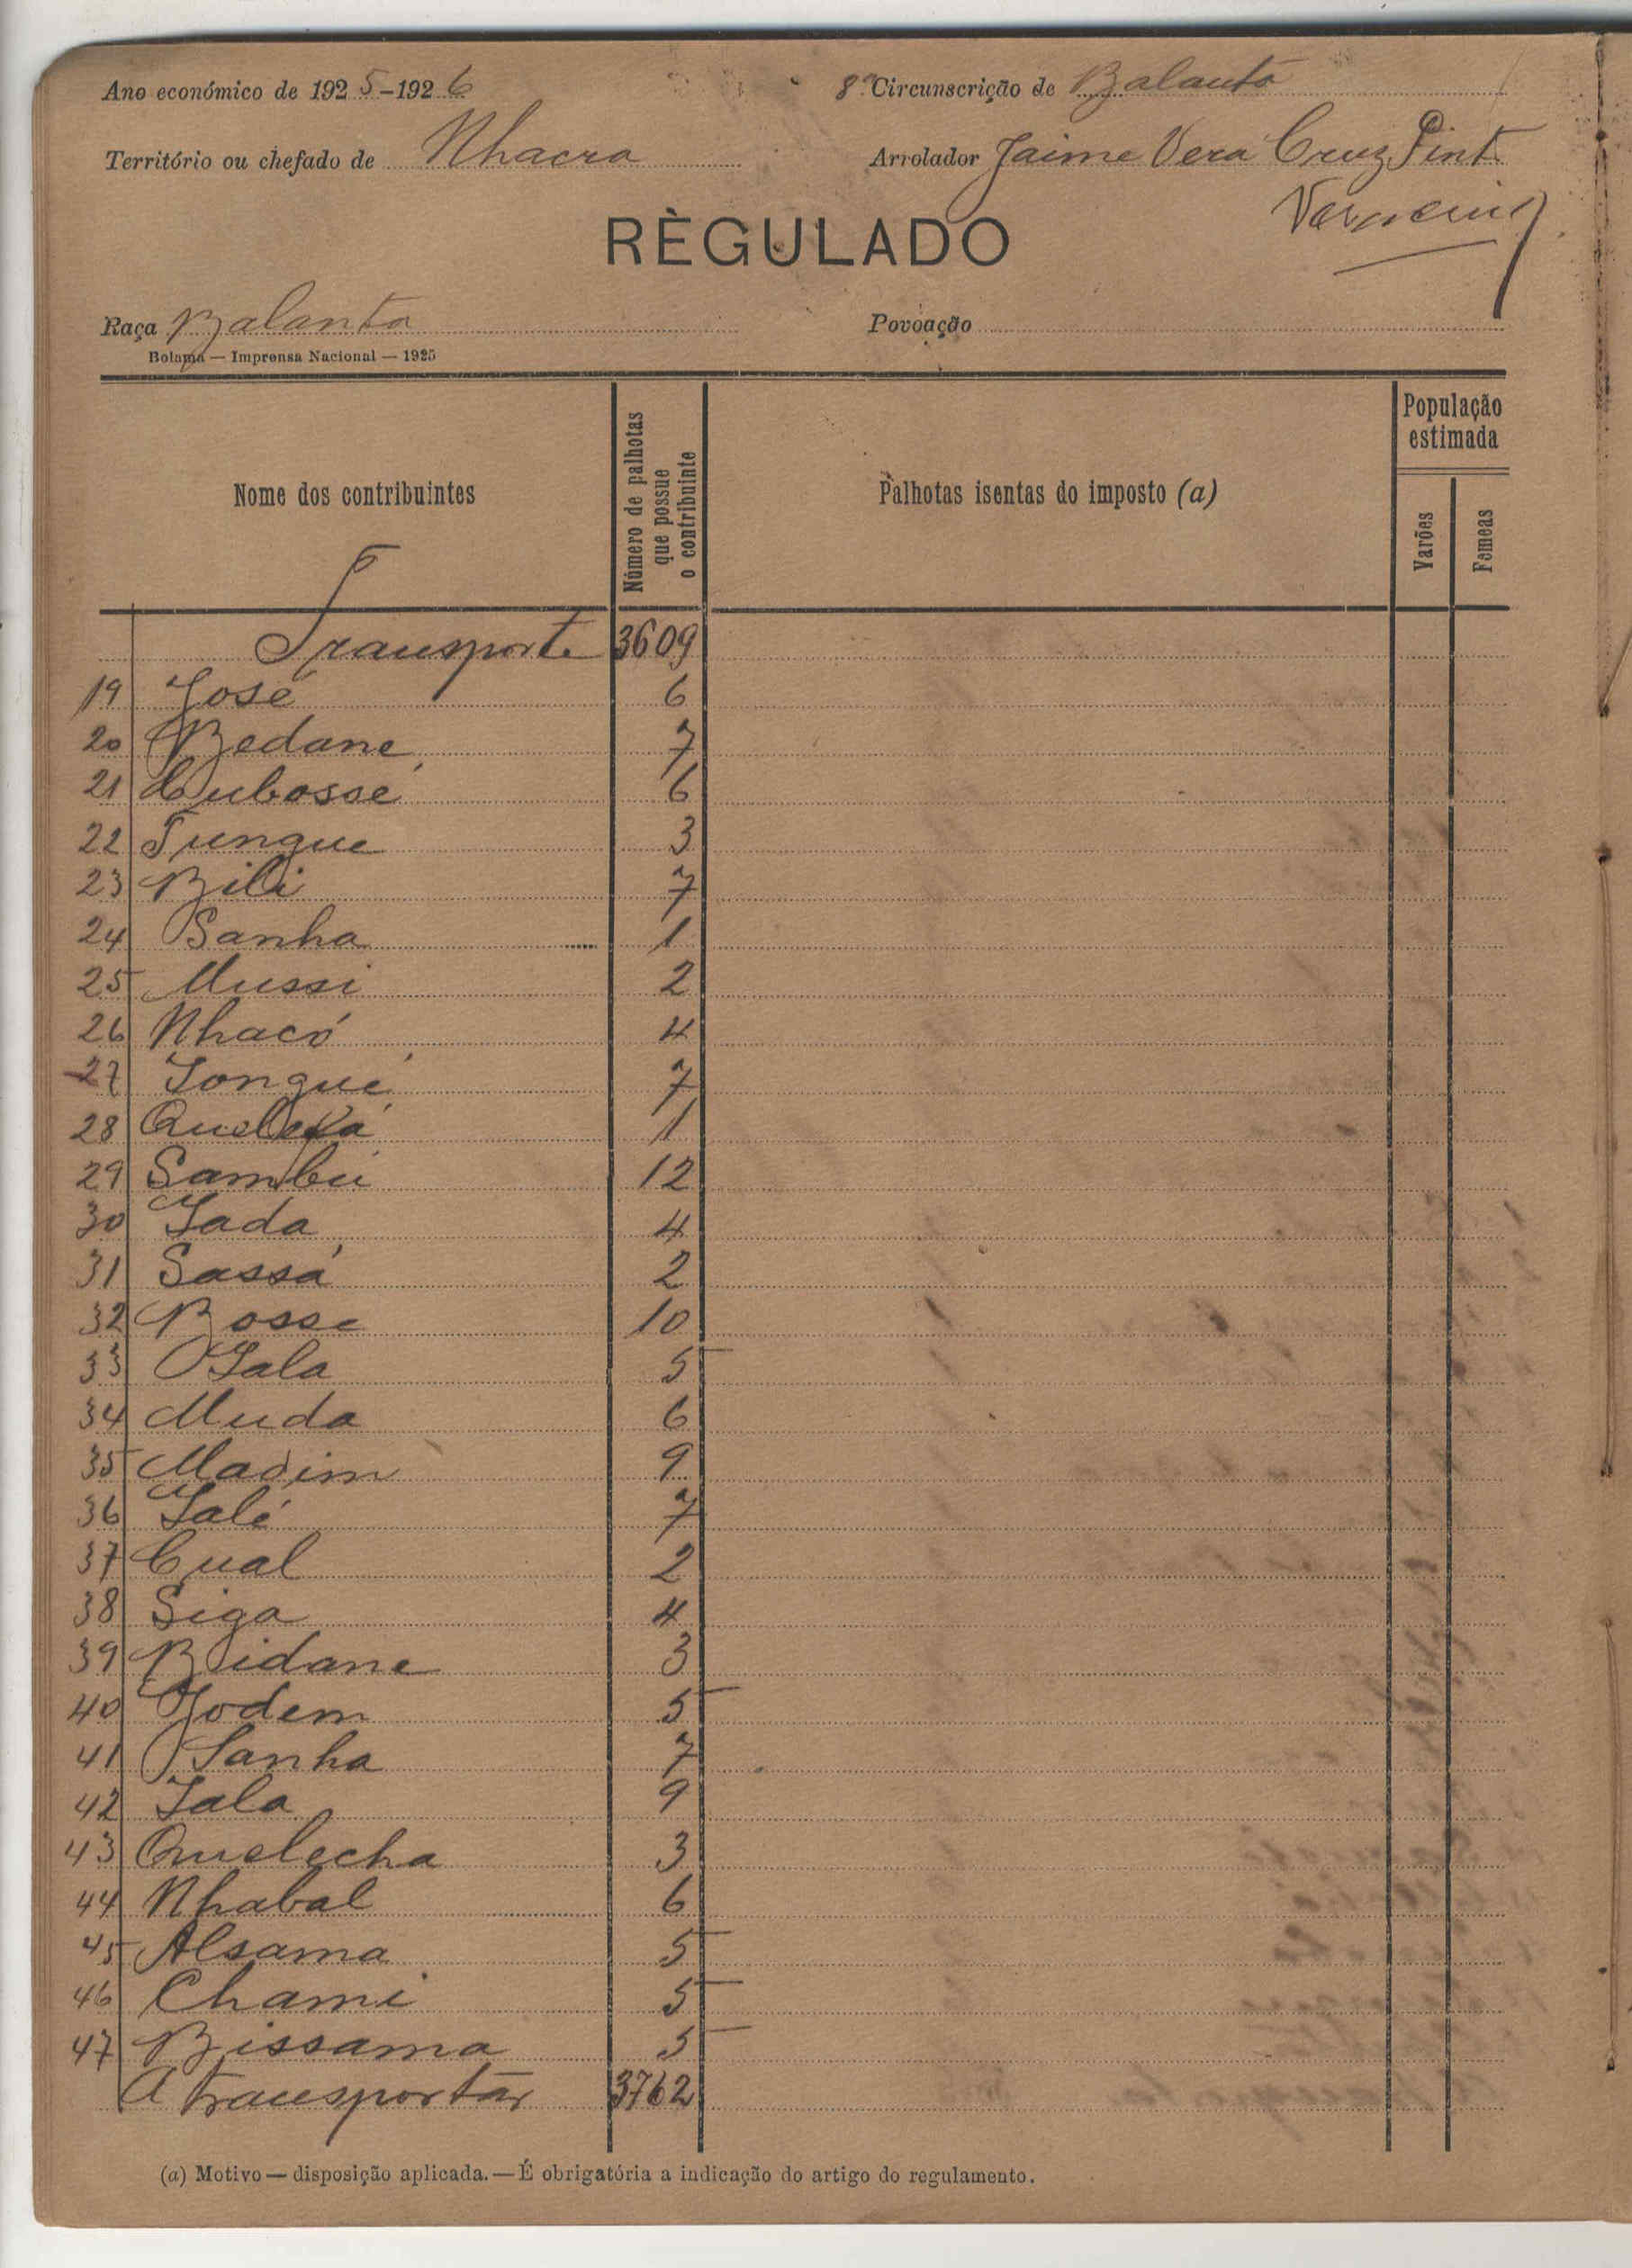 Ano económico de 1925-1926
8ª Circunscrição de Balanta
Território ou chefado de Nhacra
Arrolador Jaime Vera Cruz Pint
RÈGULADO
Raça Balanta
Povoação
Bolama — Imprensa Nacional — 1925
Nome dos contribuintes
Número de palhotas que possue o contribuinte
Palhotas isentas do imposto (a)
População estimada
Varões
Femeas
Transporte 3609
19 José 6
20 Bedane 7
21 Cubossé 6
22 Tungue 3
23 Bili 7
24 Sanha 1
25 Mussi 2
26 Nhacó 4
27 Tongué 7
28 1
29 Sambú 12
30 Tada 4
31 Sassá 2
32 Bosse 10
33 Tala 5
34 Muda 6
35 Madim 9
36 Talé 7
37 Cual 2
38 Siga 4
39 Bidane 3
40 Jodem 5
41 Sanha 7
42 Tala 9
43 Quelecha 3
44 Nhabal 6
45 Alsama 5
46 Chami 5
47 Bissama 5
A transportar 3762
(a) Motivo — disposição aplicada. — É obrigatória a indicação do artigo do regulamento.